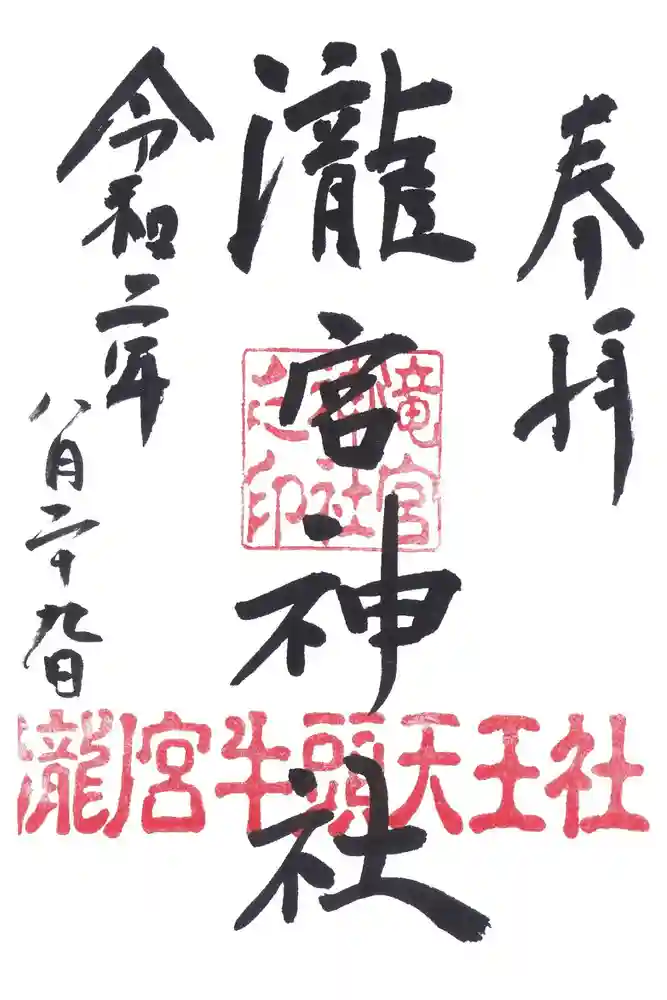 奉拝
瀧宮神社
令和二年
八月二十九日
竜宮
神社
之印
瀧宮牛頭天王社